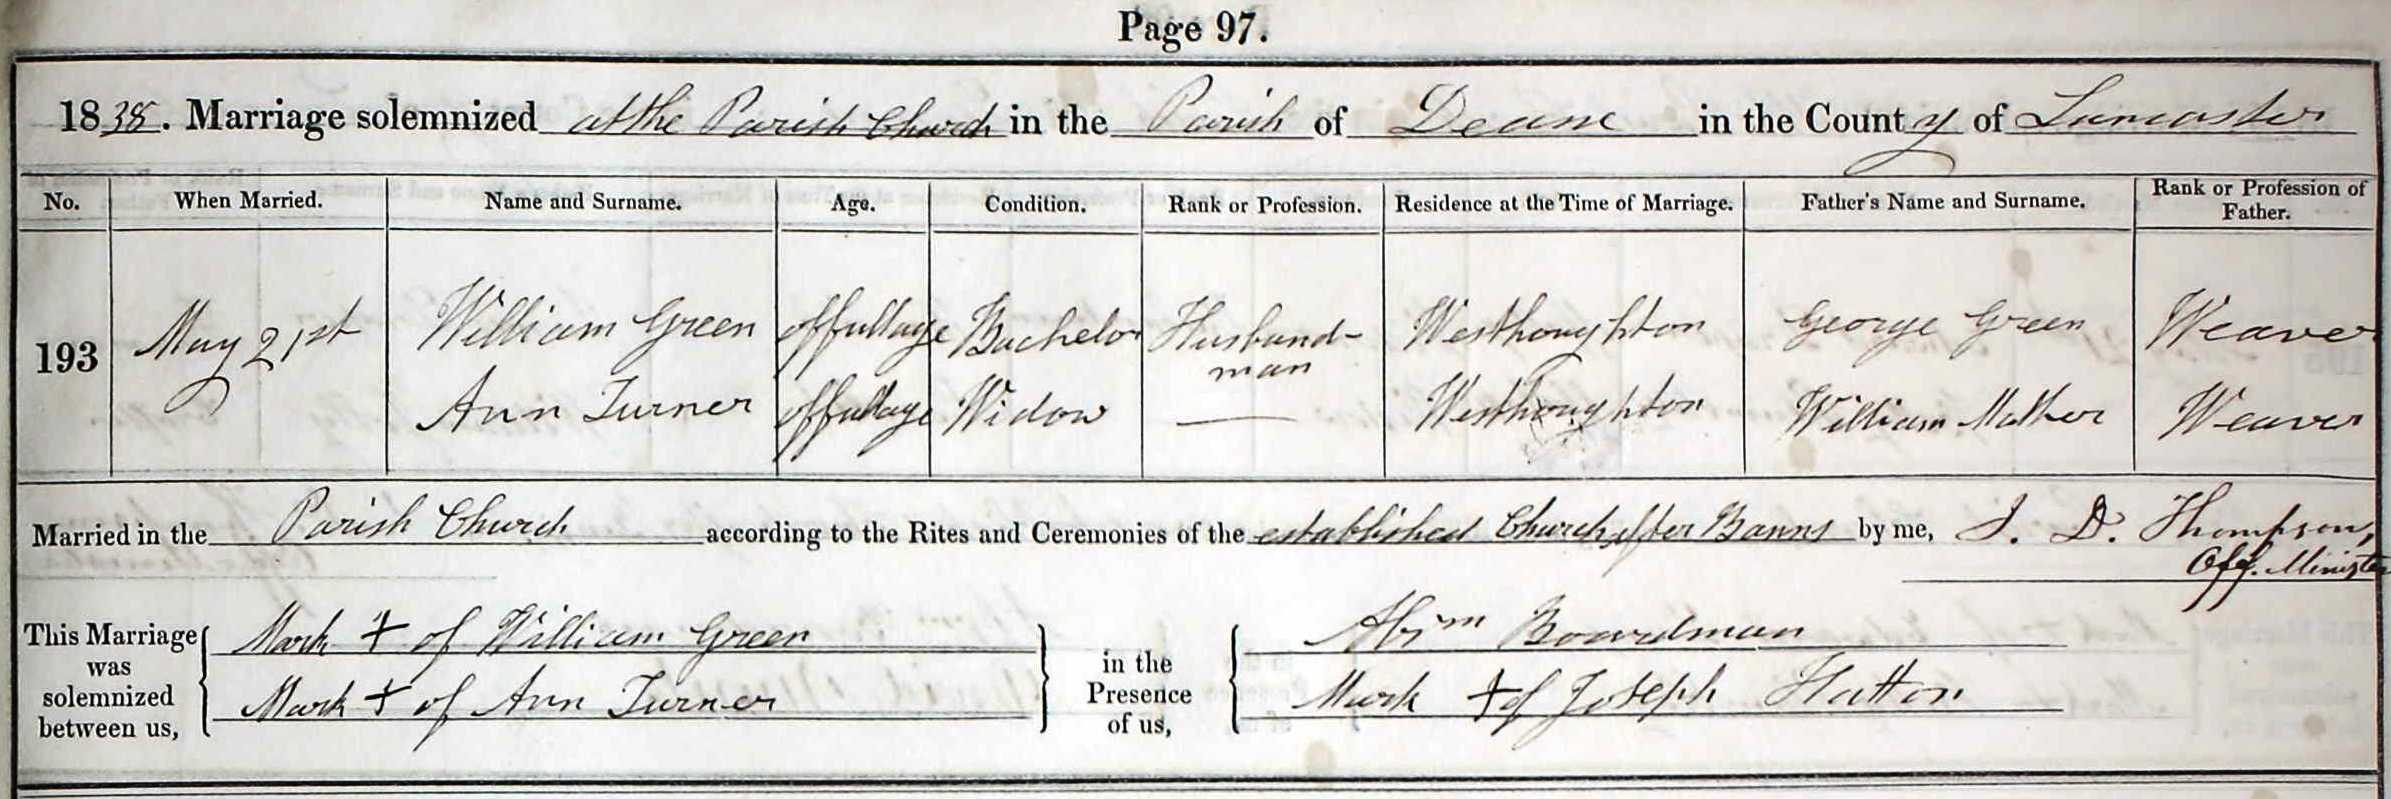 Page 97.
1838. Marriage solemnized at the Parish Church in the Parish of Deane in the County of Lancaster
No. When Married. Name and Surname. Age. Condition. Rank or Profession. Residence at the Time of Marriage. Father's Name and Surname. Rank or Profession of Father.
193 May 21st William Green of full age Bachelor Husband-man Westhoughton George Green Weaver
Ann Turner of full age Widow — Westhoughton William Mather Weaver
Married in the Parish Church according to the Rites and Ceremonies of the established Church after Banns by me, J. D. Thompson,
Off. Minister
This Marriage was solemnized between us, Mark + of William Green in the Presence of us, Abrm Boardman
Mark + of Ann Turner Mark + of Joseph Hatton